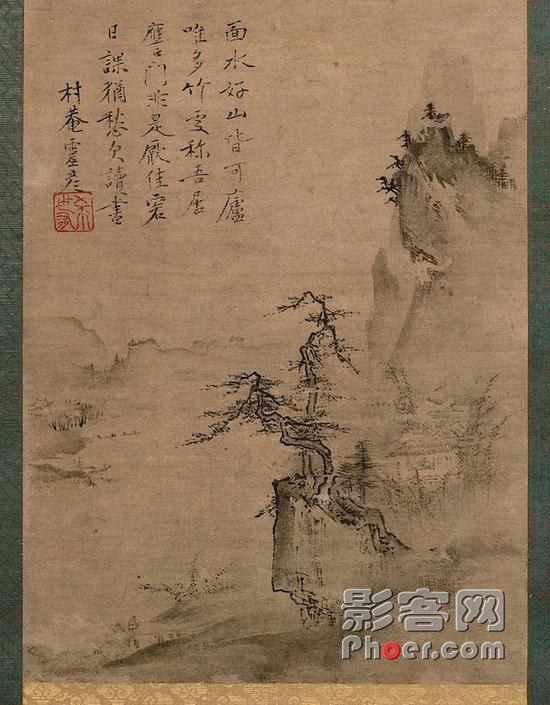 面水好山皆可廬
唯多竹處称吾居
應門非是厭佳客
日課猶愁欠讀書
村菴靈彦
影客网
Phoer.com